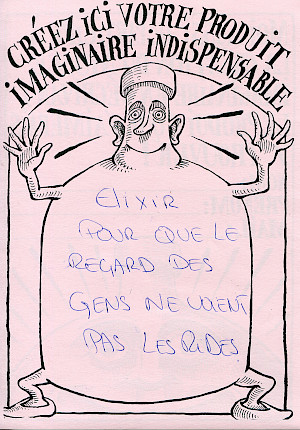 CRÉEZ ICI VOTRE PRODUIT
IMAGINAIRE INDISPENSABLE
ELIXIR
POUR QUE LE
REGARD DES
GENS NE VOIENT
PAS LES RIDES